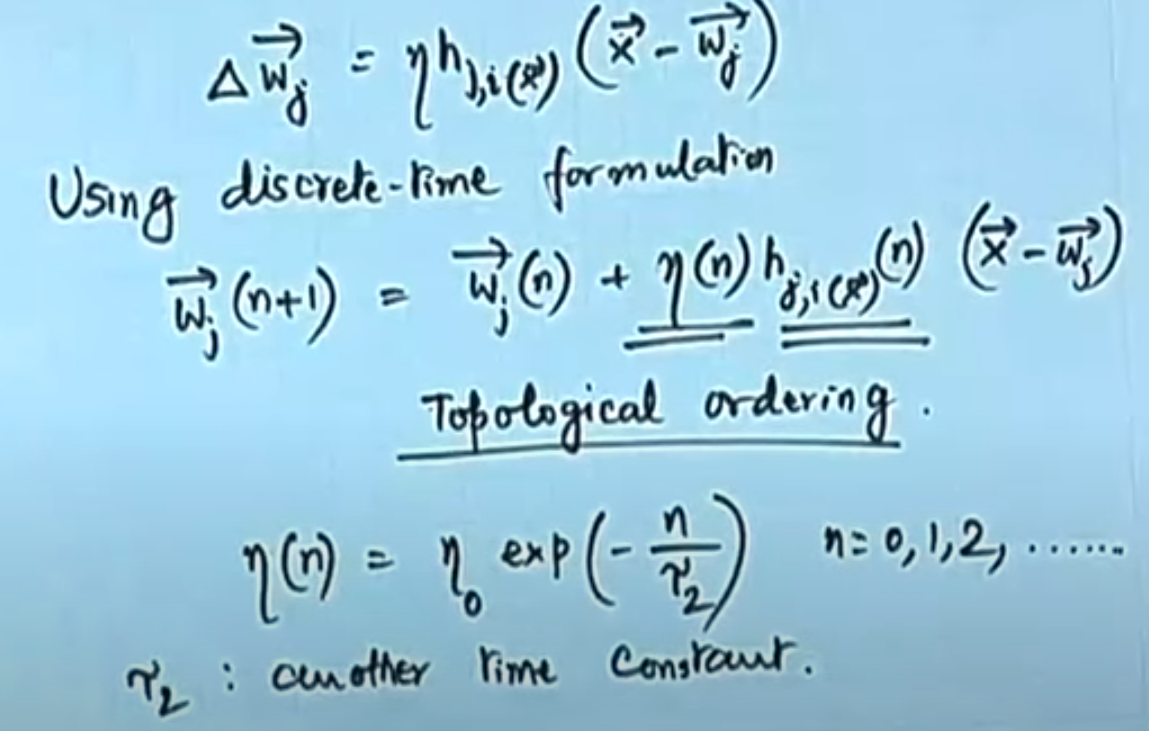 Δ\vec{w_j} = η h_{j,i(\vec{x})} (\vec{x} - \vec{w_j})
Using discrete-time formulation
\vec{w_j}(n+1) = \vec{w_j}(n) + η(n) h_{j,i(\vec{x})}(n) (\vec{x} - \vec{w_j})
Topological ordering.
η(n) = η_0 exp(-\frac{n}{τ_2}) n = 0, 1, 2, ......
τ_2 : another time constant.